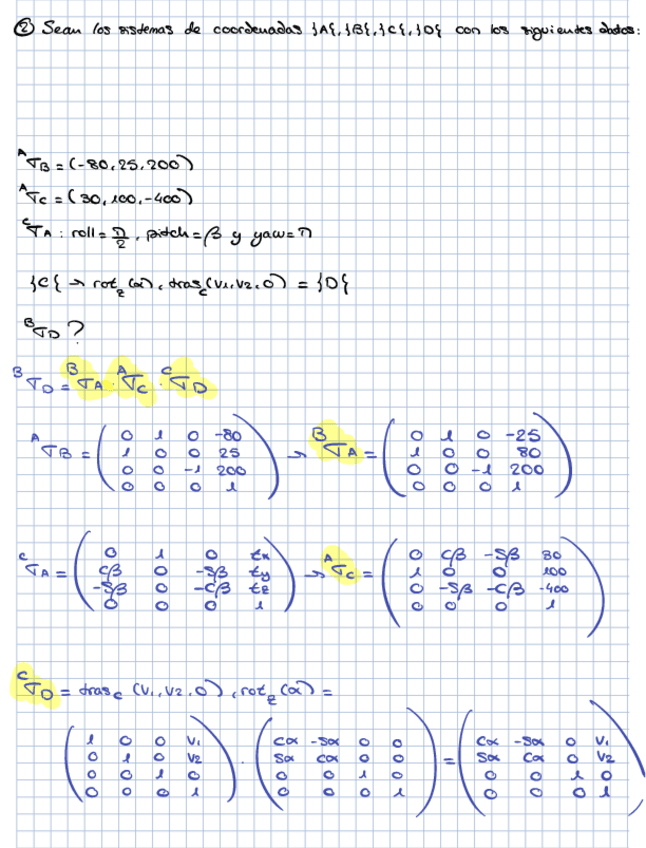 ② Sean los sistemas de coordenadas }A{, }B{, }C{, }D{ con los siguientes datos:
ᴬTB = (-80, 25, 200)
ᴬTC = (30, 100, -400)
ᶜTA : roll = π/2, pitch = β y yaw = π
}C{ → rot_z(α), tras_c(V1, V2, 0) = }D{
ᴮTD ?
ᴮTD = ᴮTA · ᴬTC · ᶜTD
ᴬTB = ( 0 1 0 -80
1 0 0 25
0 0 -1 200
0 0 0 1 ) → ᴮTA = ( 0 1 0 -25
1 0 0 80
0 0 -1 200
0 0 0 1 )
ᶜTA = ( 0 1 0 tx
cβ 0 -sβ ty
-sβ 0 -cβ tz
0 0 0 1 ) → ᴬTC = ( 0 cβ -sβ 30
1 0 0 100
0 -sβ -cβ -400
0 0 0 1 )
ᶜTD = tras_c (V1, V2, 0), rot_z (α) =
( 1 0 0 V1
0 1 0 V2
0 0 1 0
0 0 0 1 ) · ( cα -sα 0 0
sα cα 0 0
0 0 1 0
0 0 0 1 ) = ( cα -sα 0 V1
sα cα 0 V2
0 0 1 0
0 0 0 1 )